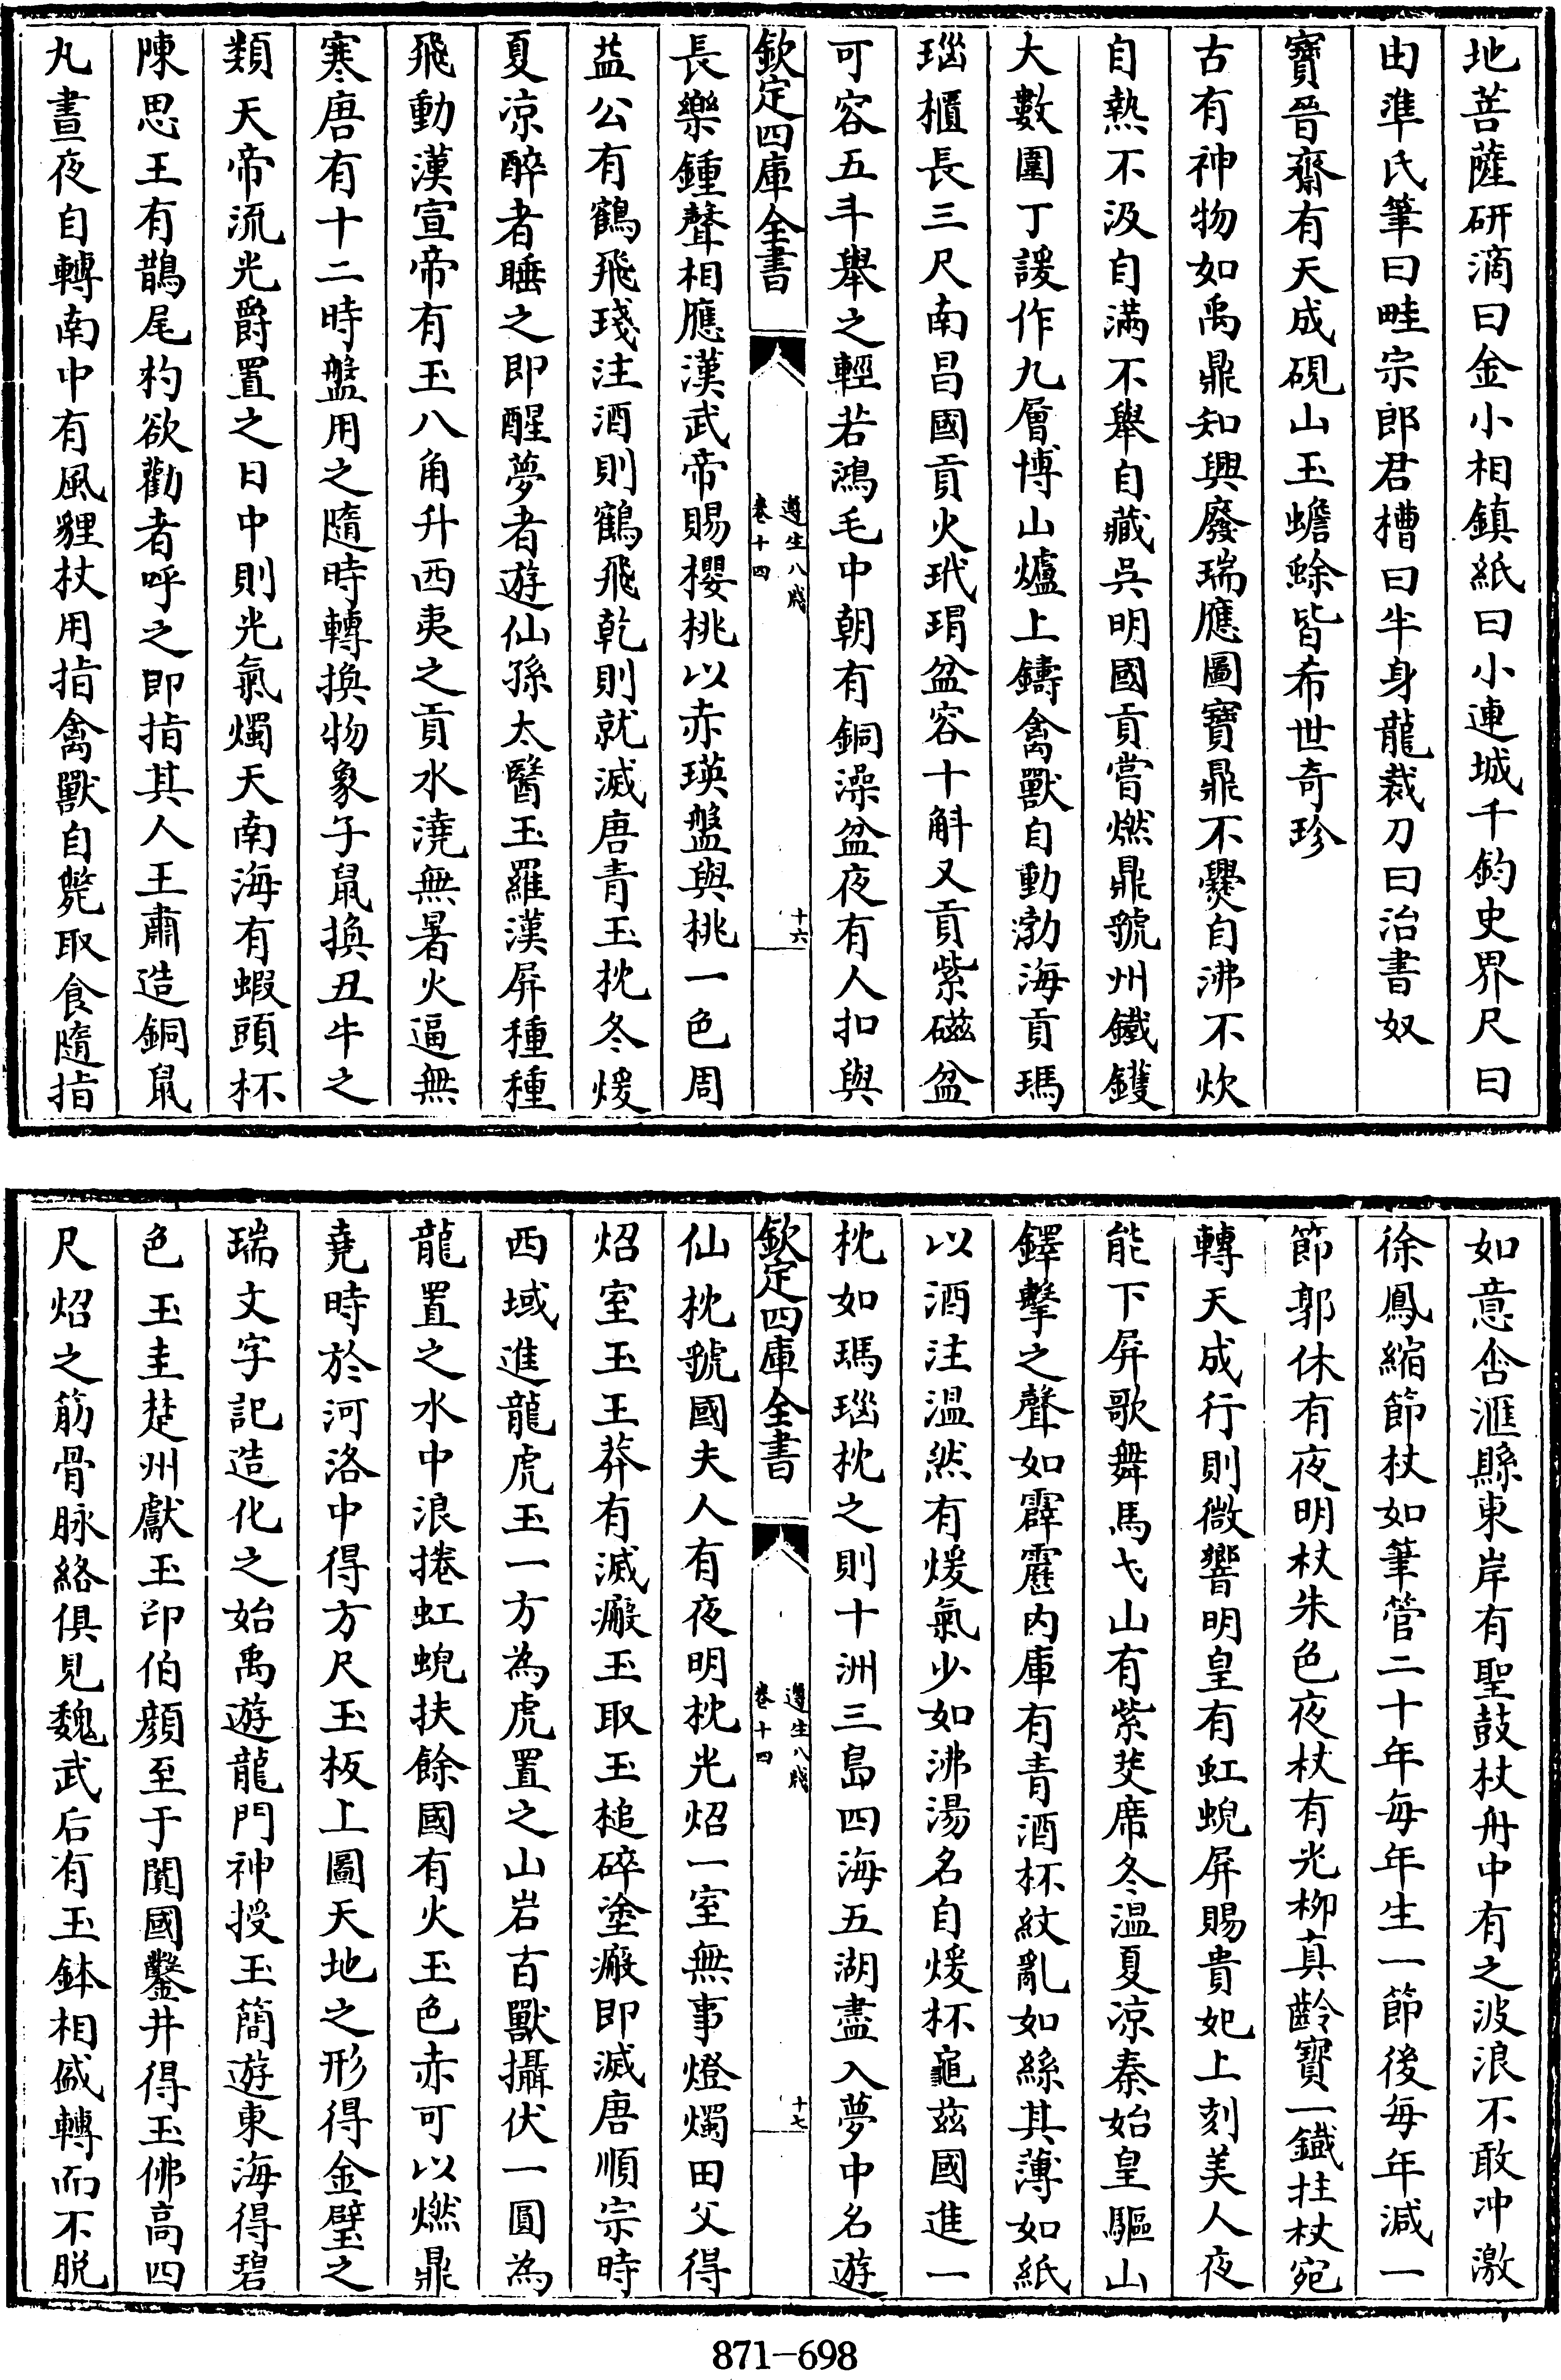 地菩薩研滴曰金小相鎮紙曰小連城千鈞史界尺曰
由準氏筆曰畦宗郎君槽曰半身龍裁刀曰治書奴
寶晉齋有天成硯山玉蟾蜍皆希世奇珍
古有神物如禹鼎知興廢瑞應圖寶鼎不爨自沸不炊
自熟不汲自滿不舉自藏吳明國貢嘗燃鼎虢州鐵鑊
大數圍丁諼作九層博山爐上鑄禽獸自動渤海貢瑪
瑙櫃長三尺南昌國貢火玳瑁盆容十斛又貢紫磁盆
可容五斗舉之輕若鴻毛中朝有銅澡盆夜有人扣與
欽定四庫全書
遵生八牋
卷十四
十六
長樂鍾聲相應漢武帝賜櫻桃以赤瑛盤與桃一色周
益公有鶴飛琖注酒則鶴飛乾則就滅唐青玉枕冬煖
夏凉醉者睡之即醒夢者遊仙孫太醫玉羅漢屏種種
飛動漢宣帝有玉八角升西夷之貢水澆無暑火逼無
寒唐有十二時盤用之隨時轉換物象子鼠換丑牛之
類天帝流光爵置之日中則光氣燭天南海有蝦頭杯
陳思王有鵲尾杓欲勸者呼之即指其人王肅造銅鼠
丸晝夜自轉南中有風貍杖用指禽獸自斃取食隨指
如意含滙縣東岸有聖鼓杖舟中有之波浪不敢冲激
徐鳳縮節杖如筆管二十年每年生一節後每年減一
節郭休有夜明杖朱色夜杖有光柳真齡寶一鐵拄杖宛
轉天成行則微響明皇有虹蜺屏賜貴妃上刻美人夜
能下屏歌舞馬弋山有紫茭席冬温夏凉秦始皇驅山
鐸擊之聲如霹靂內庫有青酒杯紋亂如絲其薄如紙
以酒注温然有煖氣少如沸湯名自煖杯龜茲國進一
枕如瑪瑙枕之則十洲三島四海五湖盡入夢中名遊
欽定四庫全書
遵生八牋
卷十四
十七
仙枕虢國夫人有夜明枕光炤一室無事燈燭田父得
炤室玉王莽有滅瘢玉取玉槌碎塗瘢即滅唐順宗時
西域進龍虎玉一方為虎置之山岩百獸攝伏一圓為
龍置之水中浪捲虹蜺扶餘國有火玉色赤可以燃鼎
堯時於河洛中得方尺玉板上圖天地之形得金璧之
瑞文字記造化之始禹遊龍門神授玉簡遊東海得碧
色玉圭楚州獻玉印伯顔至于闐國鑿井得玉佛高四
尺炤之筋骨脉絡俱見魏武后有玉鉢相盛轉而不脱
871-698